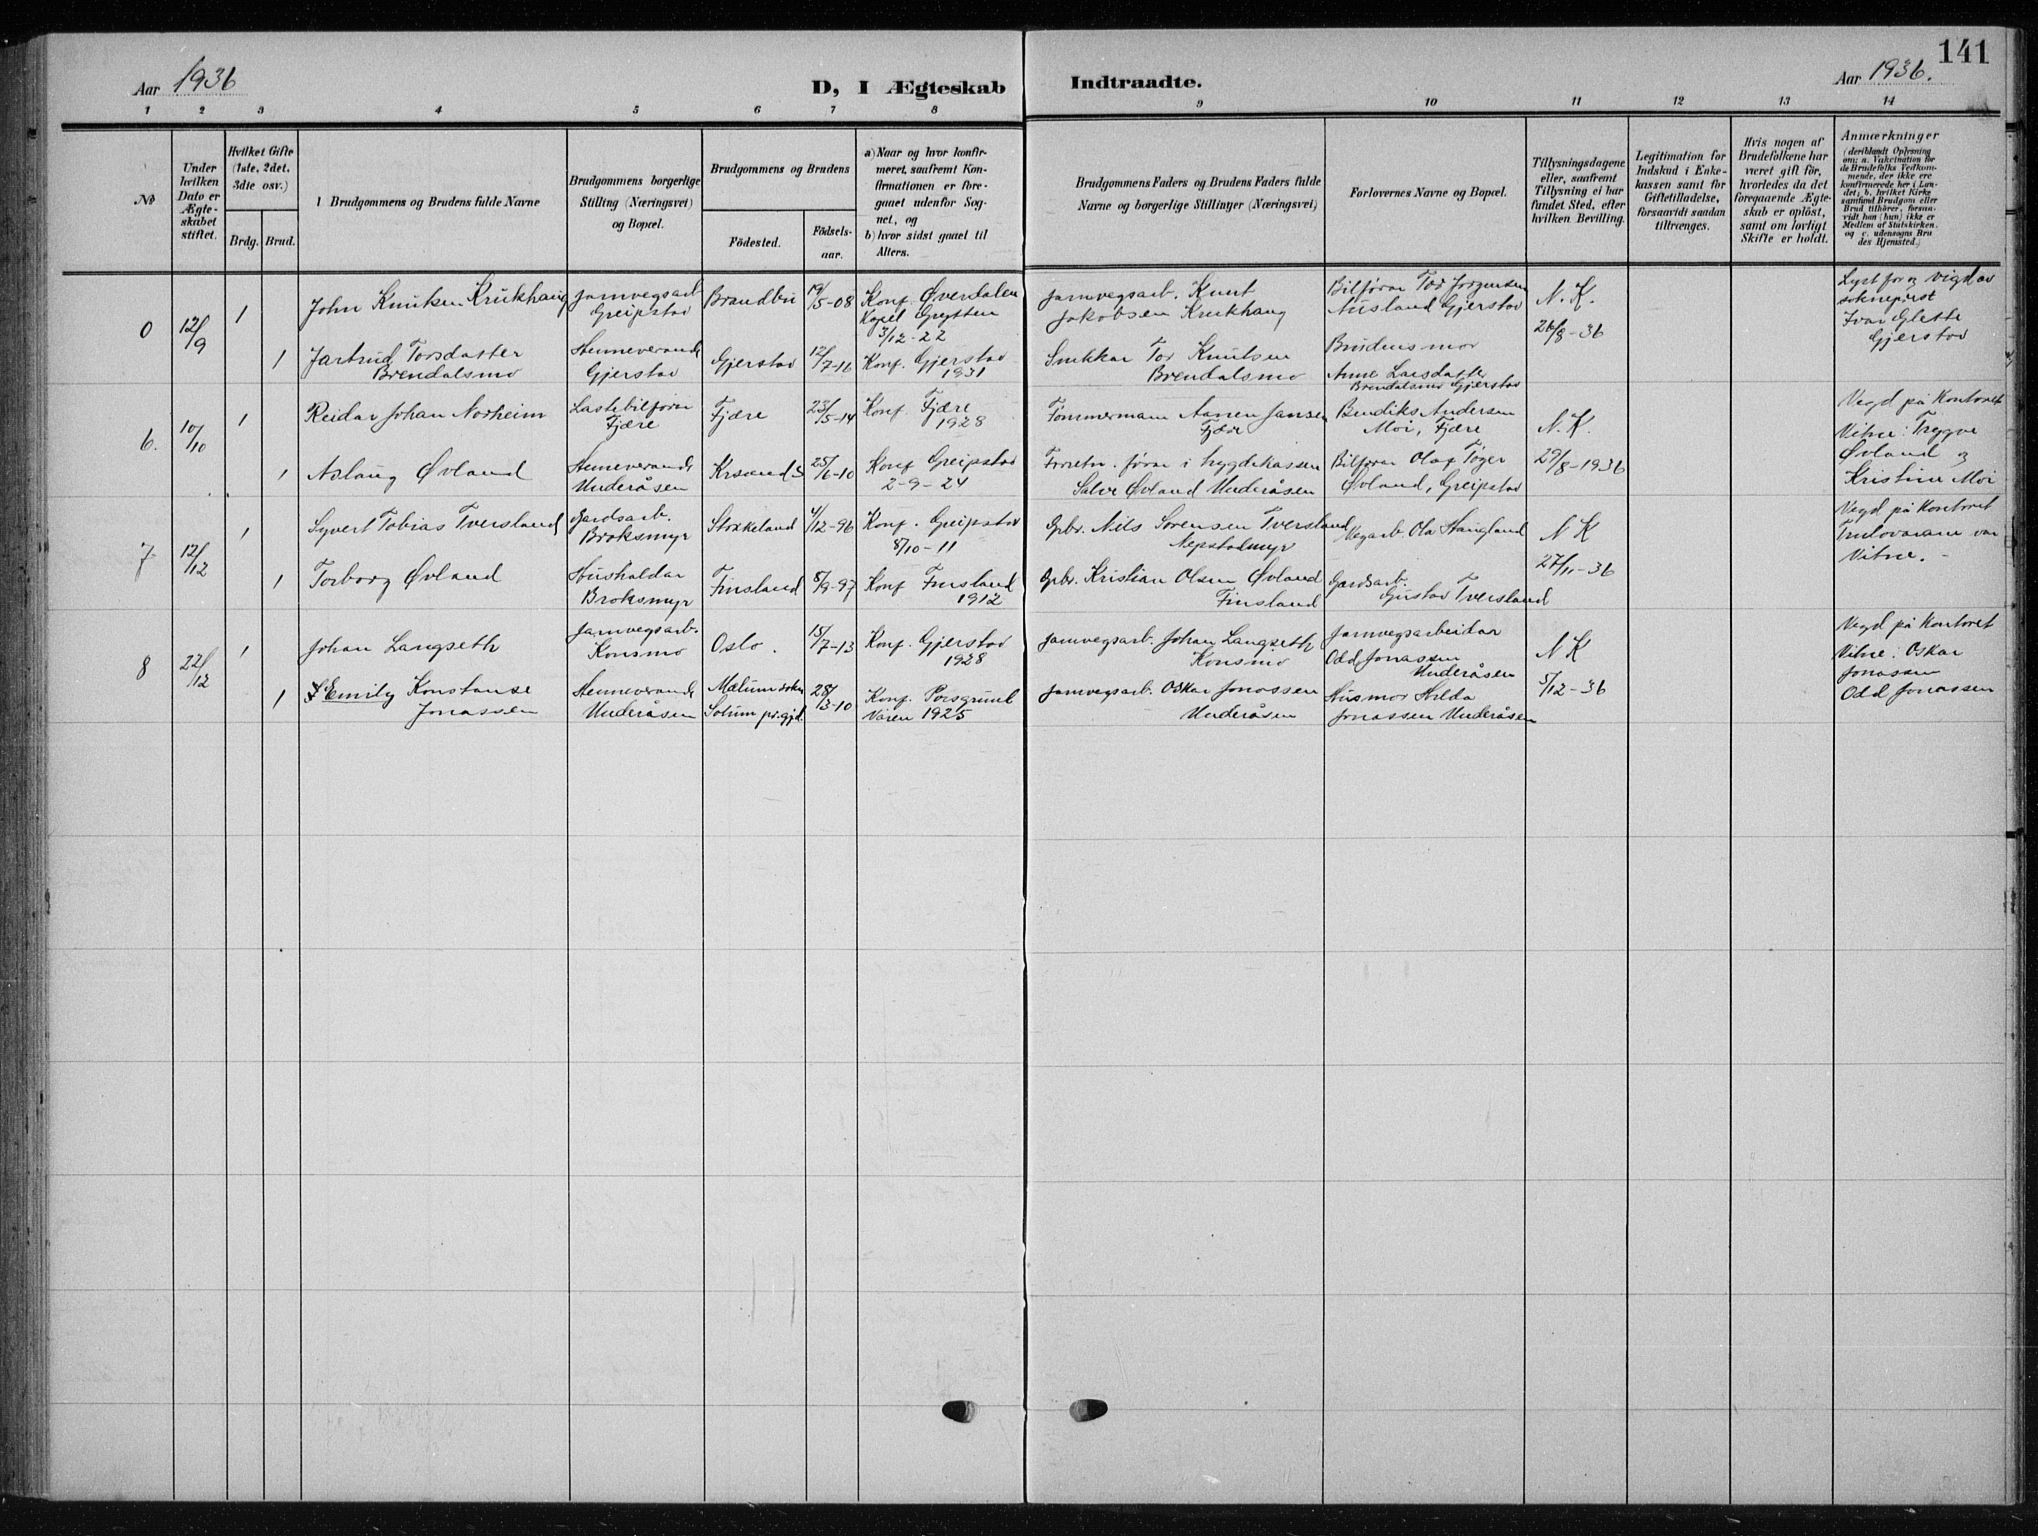 141
Aar 1936
D, I Ægteskab Indtraadte.
Aar 1936.
1 2 3 4 5 6 7 8 9 10 11 12 13 14
No
Under
hvilken
Dato er
Ægte-
skabet
stiftet.
Hvilket Gifte
(1ste, 2det,
3die osv.)
Brdg. Brud.
1 Brudgommens og Brudens fulde Navne
Brudgommens borgerlige
Stilling (Næringsvei)
og Bopæl.
Brudgommens og Brudens
Fødested.
Fødsels-
aar.
a) Naar og hvor konfir-
meret, saafremt Kon-
firmationen er fore-
gaaet udenfor Sog-
net, og
b) hvor sidst gaaet til
Alters.
Brudgommens Faders og Brudens Faders fulde
Navne og borgerlige Stillinger (Næringsvei)
Forlovernes Navne og Bopæl.
Tillysningsdagene
eller, saafremt
Tillysning ei har
fundet Sted, efter
hvilken Bevilling.
Legitimation for
Indskud i Enke-
kassen samt for
Giftetilladelse,
forsaavidt saadan
tiltrænges.
Hvis nogen af
Brudefolkene har
været gift før,
hvorledes da det
foregaaende Ægte-
skab er opløst,
samt om lovligt
Skifte er holdt.
Anmærkninger
(deriblandt Oplysning
om: a. Vakcination for
de Brudefolks Vedkom-
mende, der ikke ere
konfirmerede her i Lan-
det; b. hvilket Kirke
samfund Brudgom eller
Brud tilhører, forsaa-
vidt han (hun) ikke er
Medlem af Statskirken,
og c. udensogns Bru
des Hjemsted.)
0 12/9
1 John Knutsen Krukhaug
jarnvegsarb.
Greipstad
Brandbu
19/5-08
Konf. Øverdalen
Kapel Grytten
3/12-22
jarnvegsarb. Knut
Jakobsen Krukhaug
Bilførar Tor Jorgensen
Ausland Gjerstad
N. K.
26/8-36
Lyst for og vigd av
sokneprest
Ivar Glette
Gjerstad
1 Jartrud Torsdatter
Brendalsmo
Heimeverande
Gjerstad
Gjerstad
12/7-16
Konf. Gjerstad
1931
Snikkar Tor Knutsen
Brendalsmo
Brudens mor
Anne Larsdatter
Brendalsmo Gjerstad
6. 10/10
1 Reidar Johan Norheim
Lastebilførar
Fjære
Fjære
23/5-14
Konf. Fjære
1928
Tømmermann Aanen Jansen
Fjære
Bendiks Andersen
Moi, Fjære
N. K.
29/8-1936
Vegd på kontoret
Vitne: Trygve
Øvland og
Kristine Moi
1 Aslaug Øvland
Heimeverande
Underåsen
Krsand S
25/6-10
Konf Greipstad
2-9-24
Forretn. førar i trygdekassen
Salve Øvland Underåsen
Bilførar Olaf Tøger
Øvland, Greipstad
7 12/12
1 Syvert Tobias Tversland
Gardsarb.
Broksmyr
Stokkeland
4/12-96
Konf. Greipstad
8/10-11
Gbr. Nils Sørensen Tversland
Nepstadmyr
Vegarb. Ola Haugland
N K
27/11-36
Vegd på kontoret
Trulovarane var
Vitne.-
1 Torborg Øvland
Hushaldar
Broksmyr
Finsland
8/9-97
Konf Finsland
1912
Gbr. Kristian Olsen Øvland
Finsland
Gardsarb.
Gustav Tversland
8 22/12
1 Johan Langseth
jarnvegsarb.
Konsmo
Oslo.
15/7-13
Konf. Gjerstad
1928
jarnvegsarb. Johan Langseth
Konsmo
Jarnvegsarbeidar
Odd Jonassen
Underåsen
N K
5/12-36
Vegd på kontoret
Vitne: Oskar
Jonassen
Odd Jonassen
1 Emily Konstanse
Jonassen
Heimeverande
Underåsen
Mælum sokn
Solum pr.gjd.
28/3-10
Konf. Porsgrund
Våren 1925
jarnvegsarb. Oskar Jonassen
Underåsen
Husmor Hilda
Jonassen Underåsen